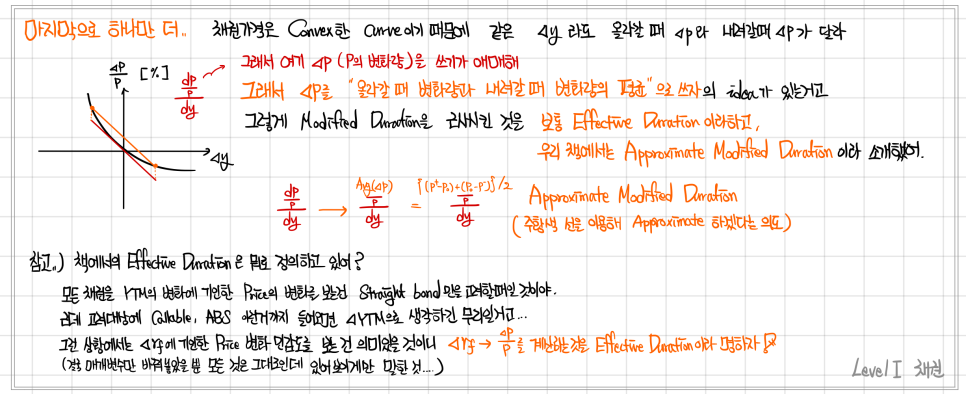 마지막으로 하나만 더..
채권가격은 Convex한 Curve이기 때문에 같은 Δy 라도 올라갈 때 Δp와 내려갈때 ΔP가 달라
그래서 여기 ΔP (P의 변화량)을 쓰기가 애매해
그래서 ΔP를 "올라갈 때 변화량과 내려갈 때 변화량의 평균"으로 쓰자의 idea가 있는거고
그렇게 Modified Duration을 근사시킨 것을 보통 Effective Duration이라하고,
우리 책에서는 Approximate Modified Duration이라 소개했어.
ΔP/P [%]
dP/P/dy
Δy
dP/P/dy → Avg(ΔP)/P/dy = {(P⁺-P₀)+(P₀-P⁻)}/2/P/dy
Approximate Modified Duration
(주황색 선을 이용해 Approximate 하겠다는 의도)
참고..) 책에서의 Effective Duration은 뭐로 정의하고 있어?
모든 채권을 YTM의 변화에 기인한 Price의 변화를 보는건 Straight bond만을 고려할때일 것이야.
근데 고려대상에 Callable, ABS 이런거까지 들어오면 ΔYTM으로 생각하긴 무리일거고...
그런 상황에서는 Δrf에 기인한 Price 변화 민감도를 보는 건 의미있을 것이니 Δrf → ΔP/P를 계산하는것을 Effective Duration이라 명하자!
(걍 매개변수만 바뀌었을 뿐 모든 것은 그대로인데 있어보이게만 말한 것....)
Level I 채권